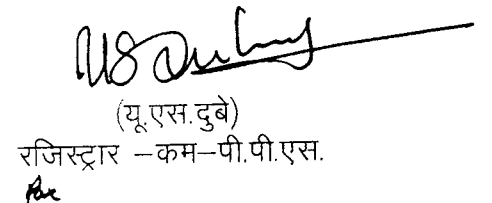 (यू.एस.दुबे)
रजिस्ट्रार –कम–पी.पी.एस.